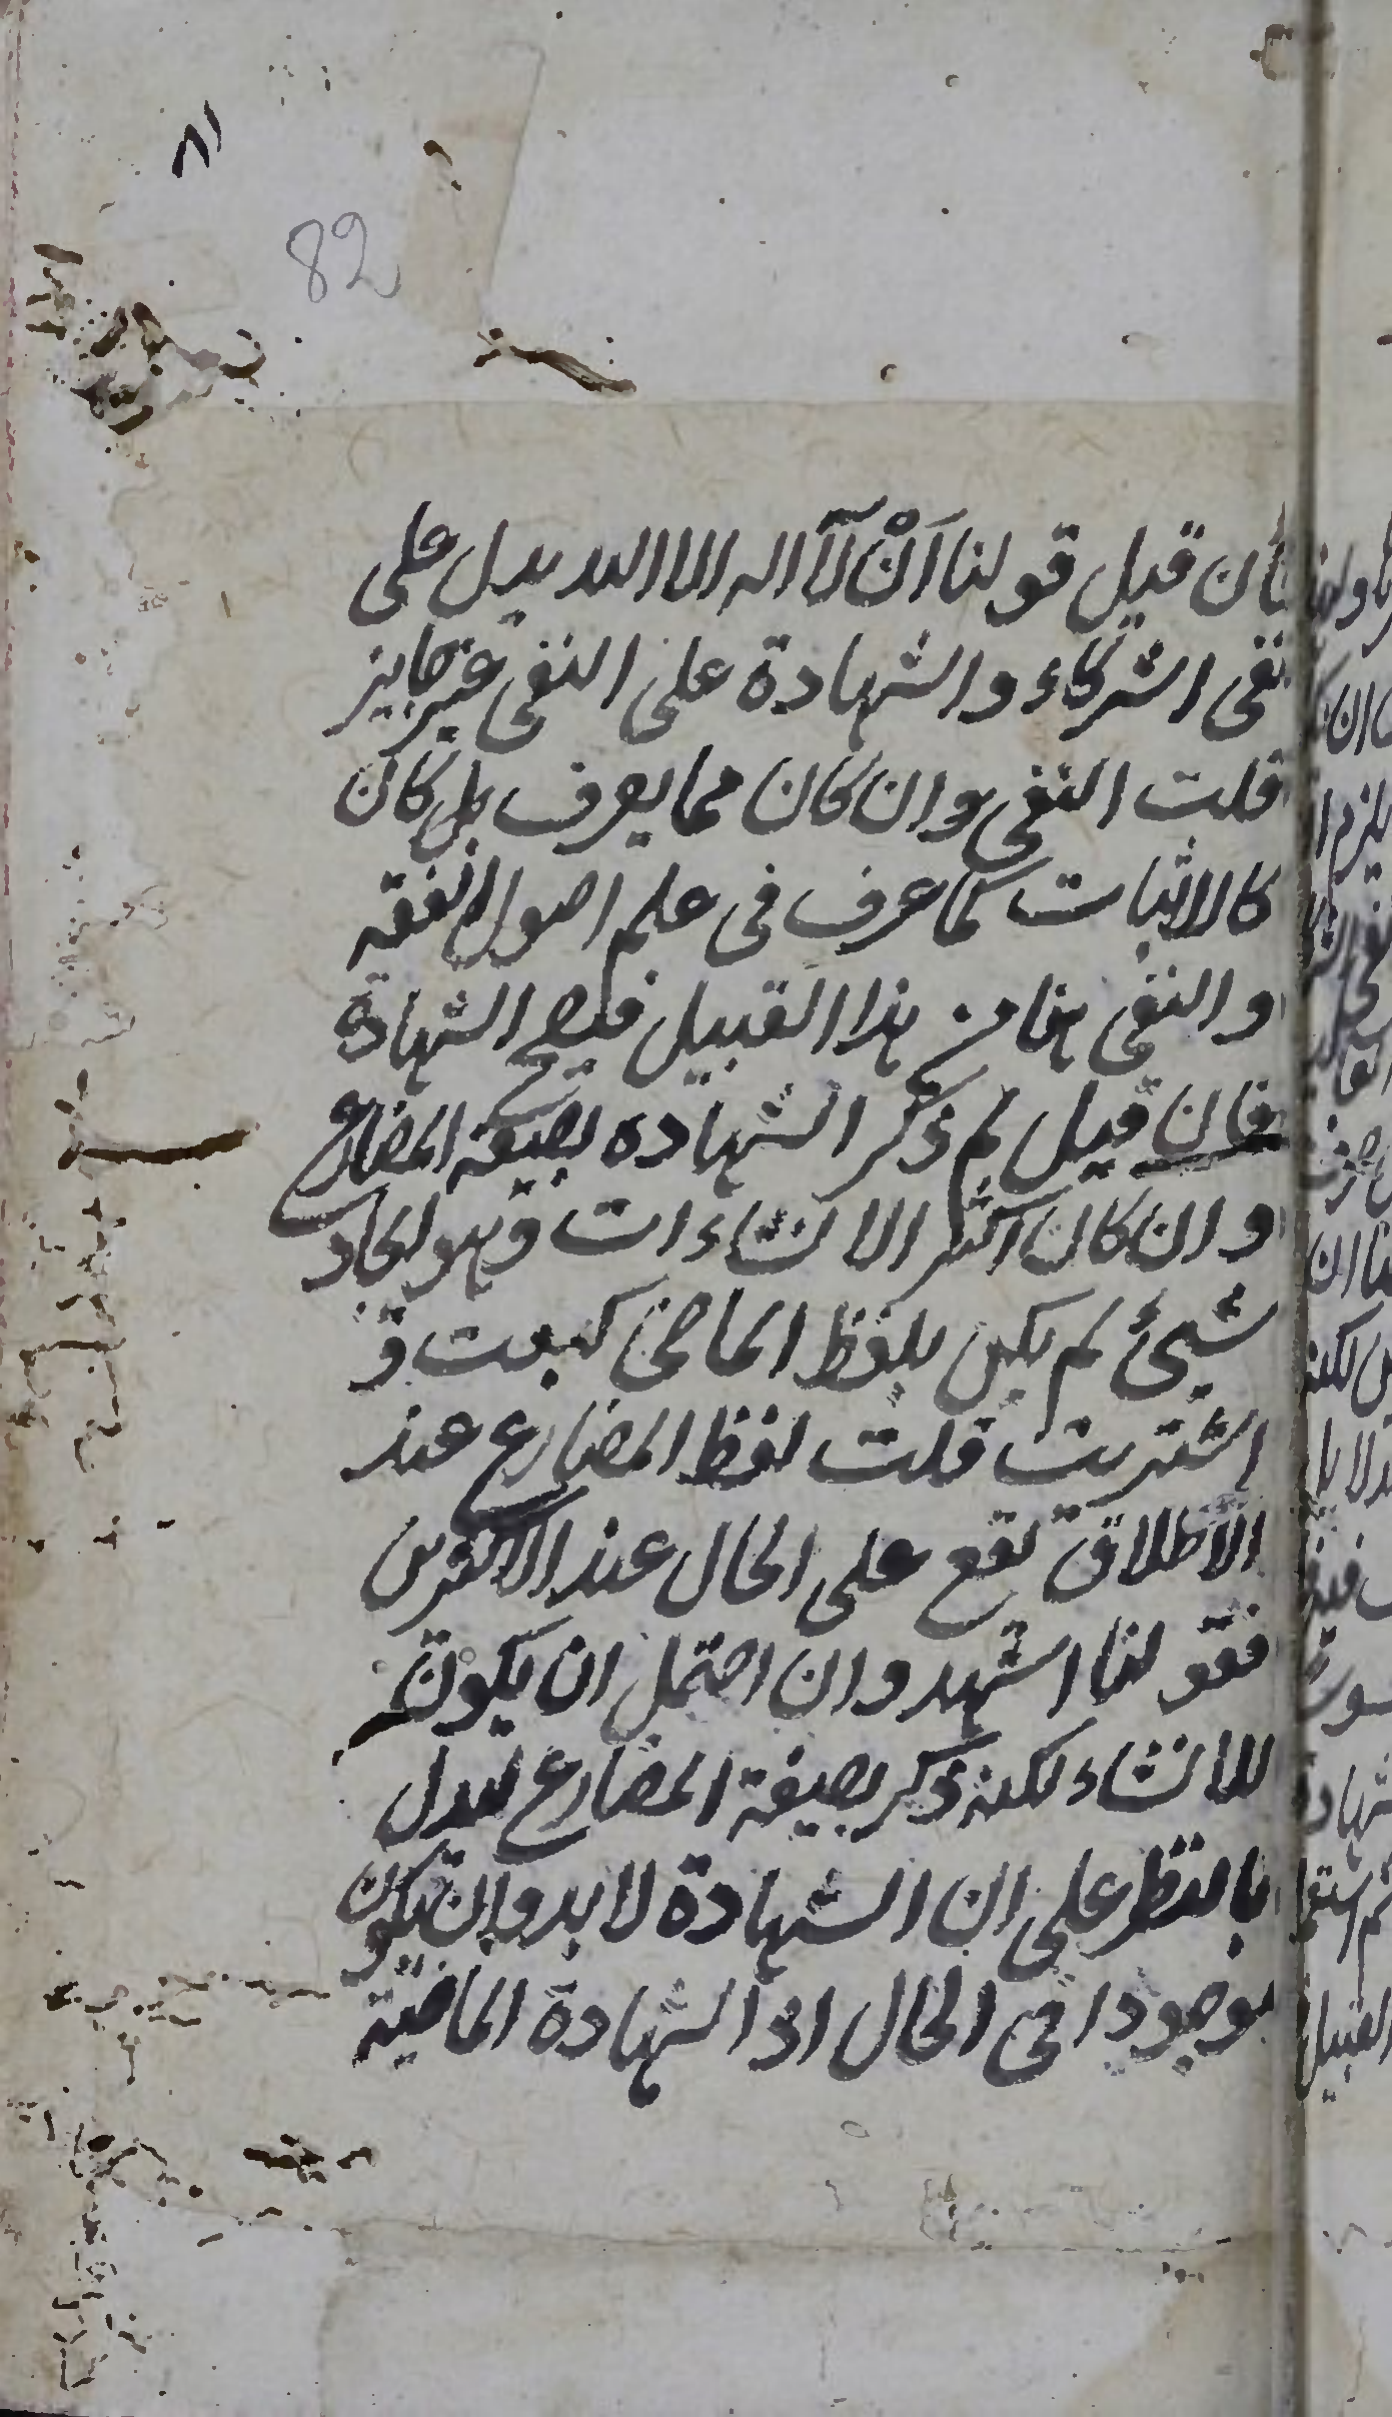 ٨١
82
فان قيل قولنا اَنْ لآ اله الا الله يدل على
نفى الشركاء والشهادة على النفى غير جايز
قلت النفى وان كان مما يعرف بل كان
كالاثبات كما عرف فى علم اصول الفقه
والنفى هنا من هذا القبيل فيصح الشهادة
فان قيل لم ذكر الشهاده بصيغة المضارع
وان كان اكثر الانشاءات وهو ايجاد
شيئ لم يكن بلفظ الماضى كبعت و
اشتريت قلت لفظ المضارع عند
الاطلاق يقع على الحال عند الاكثرين
فقولنا اشهد وان احتمل ان يكون
للانشاء لكنه ذكر بصيغة المضارع ليدل
بالنظر على ان الشهادة لا بد وان تكون
موجودا فى الحال اذ الشهادة الماضية